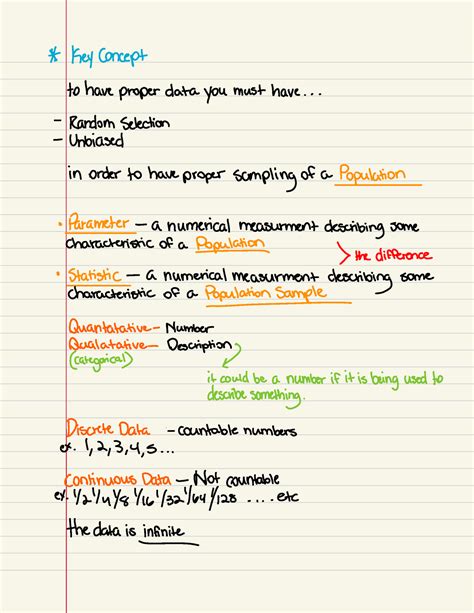 * Key Concept
to have proper data you must have...
- Random Selection
- Unbiased
in order to have proper sampling of a Population
• Parameter – a numerical measurment describing some
characteristic of a Population
> the difference
• Statistic – a numerical measurment describing some
characteristic of a Population Sample
Quantatative – Number
Qualatative – Description
(categorical)
it could be a number if it is being used to
describe something.
Discrete Data – countable numbers
ex. 1, 2, 3, 4, 5...
Continuous Data – Not countable
ex. 1/2 1/4 1/8 1/16 1/32 1/64 1/128 .... etc
the data is infinite